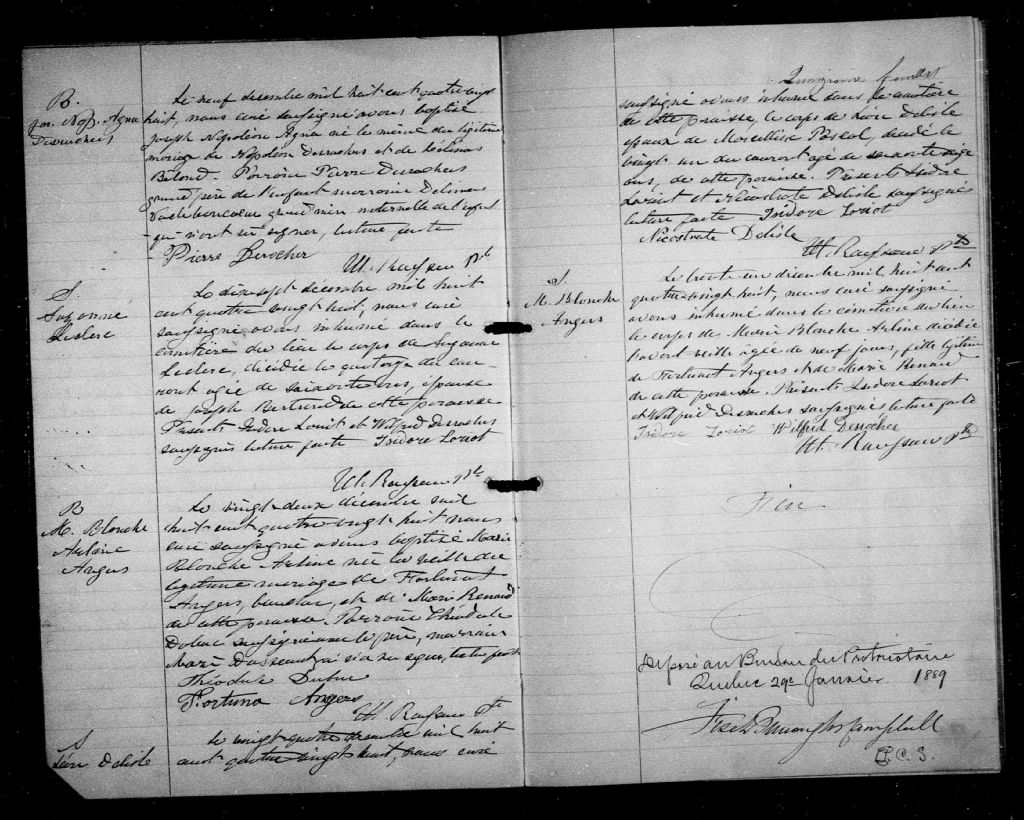 B.
Jos. Nap. Agna
Desrochers
Le neuf decembre mil huit cent quatre vingt
huit, nous curé soussigné avons baptisé
Joseph Napoléon Agna né le même du légitime
mariage de Napoléon Desrochers et de
Béland. Parrain Pierre Desrochers
grand père de l'enfant marraine
grand mère maternelle de l'enfant
qui n'ont su signer, lecture faite
Pierre Derocher
Ptr
S.
Suzanne
Leclerc
Le dix sept décembre mil huit
cent quatre vingt huit, nous curé
soussigné avons inhumé dans le
cimetière du lieu le corps de Suzanne
Leclerc, décédée le quatorze du cou-
rant agée de soixante ans, épouse
de Joseph de cette paroisse
Présents Isidore Loriot et Wilfrid Desroches
soussignés lecture faite Isidore Loriot
Ptr
B
M. Blanche
Arline
Angers
Le vingt deux décembre mil
huit cent quatre vingt huit nous
curé soussigné avons baptisé Marie
Blanche Arline née la veille du
légitime mariage de Fortunat
Angers, et de Marie Renaud
de cette paroisse. Parrain Théodule
Dubuc soussigné avec le père, marraine
Marie qui n'a su signer, lecture faite
Théodule Dubuc
Fortuna Angers
Ptr
S
Léon Delisle
Le vingt quatre décembre mil huit
cent quatre vingt huit, nous curé
Quinzieme feuillet
soussigné avons inhumé dans le cimetière
de cette paroisse, le corps de Léon Delisle
époux de Marcelline Pascal, décédé le
vingt un du courant agé de soixante
ans, de cette paroisse. Présents Isidore
Loriot et Nicostrate Delisle soussignés
lecture faite Isidore Loriot
Nicostrate Delisle
Ptr
S
M. Blanche
Angers
Le trente un décembre mil huit cent
quatre-vingt huit, nous curé soussigné
avons inhumé dans le cimetière du lieu
le corps de Marie Blanche Arline décédée
l'avant veille agée de neuf jours, fille légitime
de Fortunat Angers et de Marie Renaud
de cette paroisse. Présents Isidore Loriot
et Wilfrid Desroches soussignés lecture faite
Isidore Loriot Wilfrid Desroches
Ptr
Fin
Déposé au Bureau du Protonotaire
Québec 29e Janvier 1889
Fiset Burroughs Campbell
P.C.S.